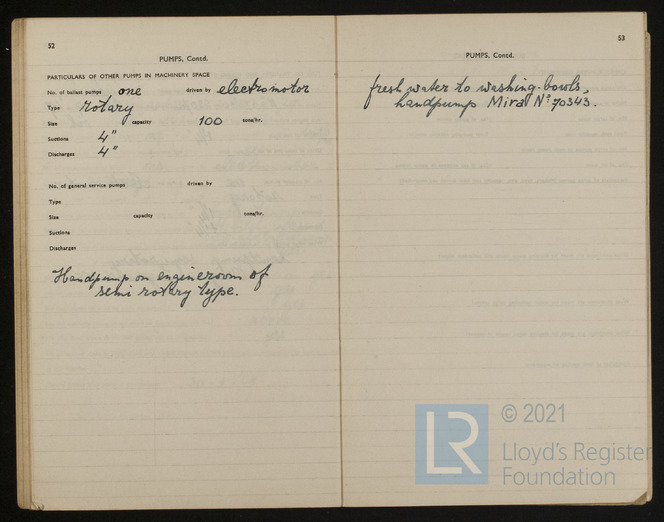 52
PUMPS, Contd.
PARTICULARS OF OTHER PUMPS IN MACHINERY SPACE
No. of ballast pumps one driven by electromotor
Type rotary
Size capacity 100 tons/hr.
Suctions 4"
Discharges 4"
No. of general service pumps driven by
Type
Size capacity tons/hr.
Suctions
Discharges
Handpump on engineroom of
semi rotary type.
53
PUMPS, Contd.
fresh water to washing-bowls,
handpump Mira Nº 70343.
LR
© 2021
Lloyd's Register
Foundation